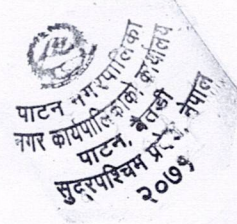 पाटन नगरपालिका
नगर कार्यपालिकाको कार्यालय
पाटन, बैतडी
सुदूरपश्चिम प्रदेश, नेपाल
२०७३